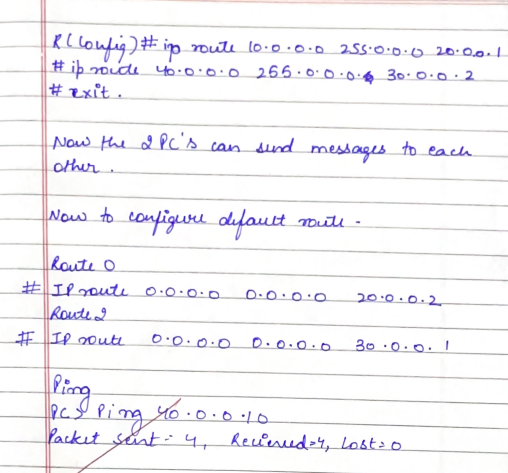 R(config)# ip route 10.0.0.0 255.0.0.0 20.0.0.1
# ip route 40.0.0.0 255.0.0.0 30.0.0.2
# exit.
Now the 2 PC's can send messages to each
other.
Now to configure default route -
Route 0
# IP route 0.0.0.0 0.0.0.0 20.0.0.2
Route 2
# IP route 0.0.0.0 0.0.0.0 30.0.0.1
Ping
PC> Ping 40.0.0.10
Packet sent = 4, Recieved=4, Lost=0